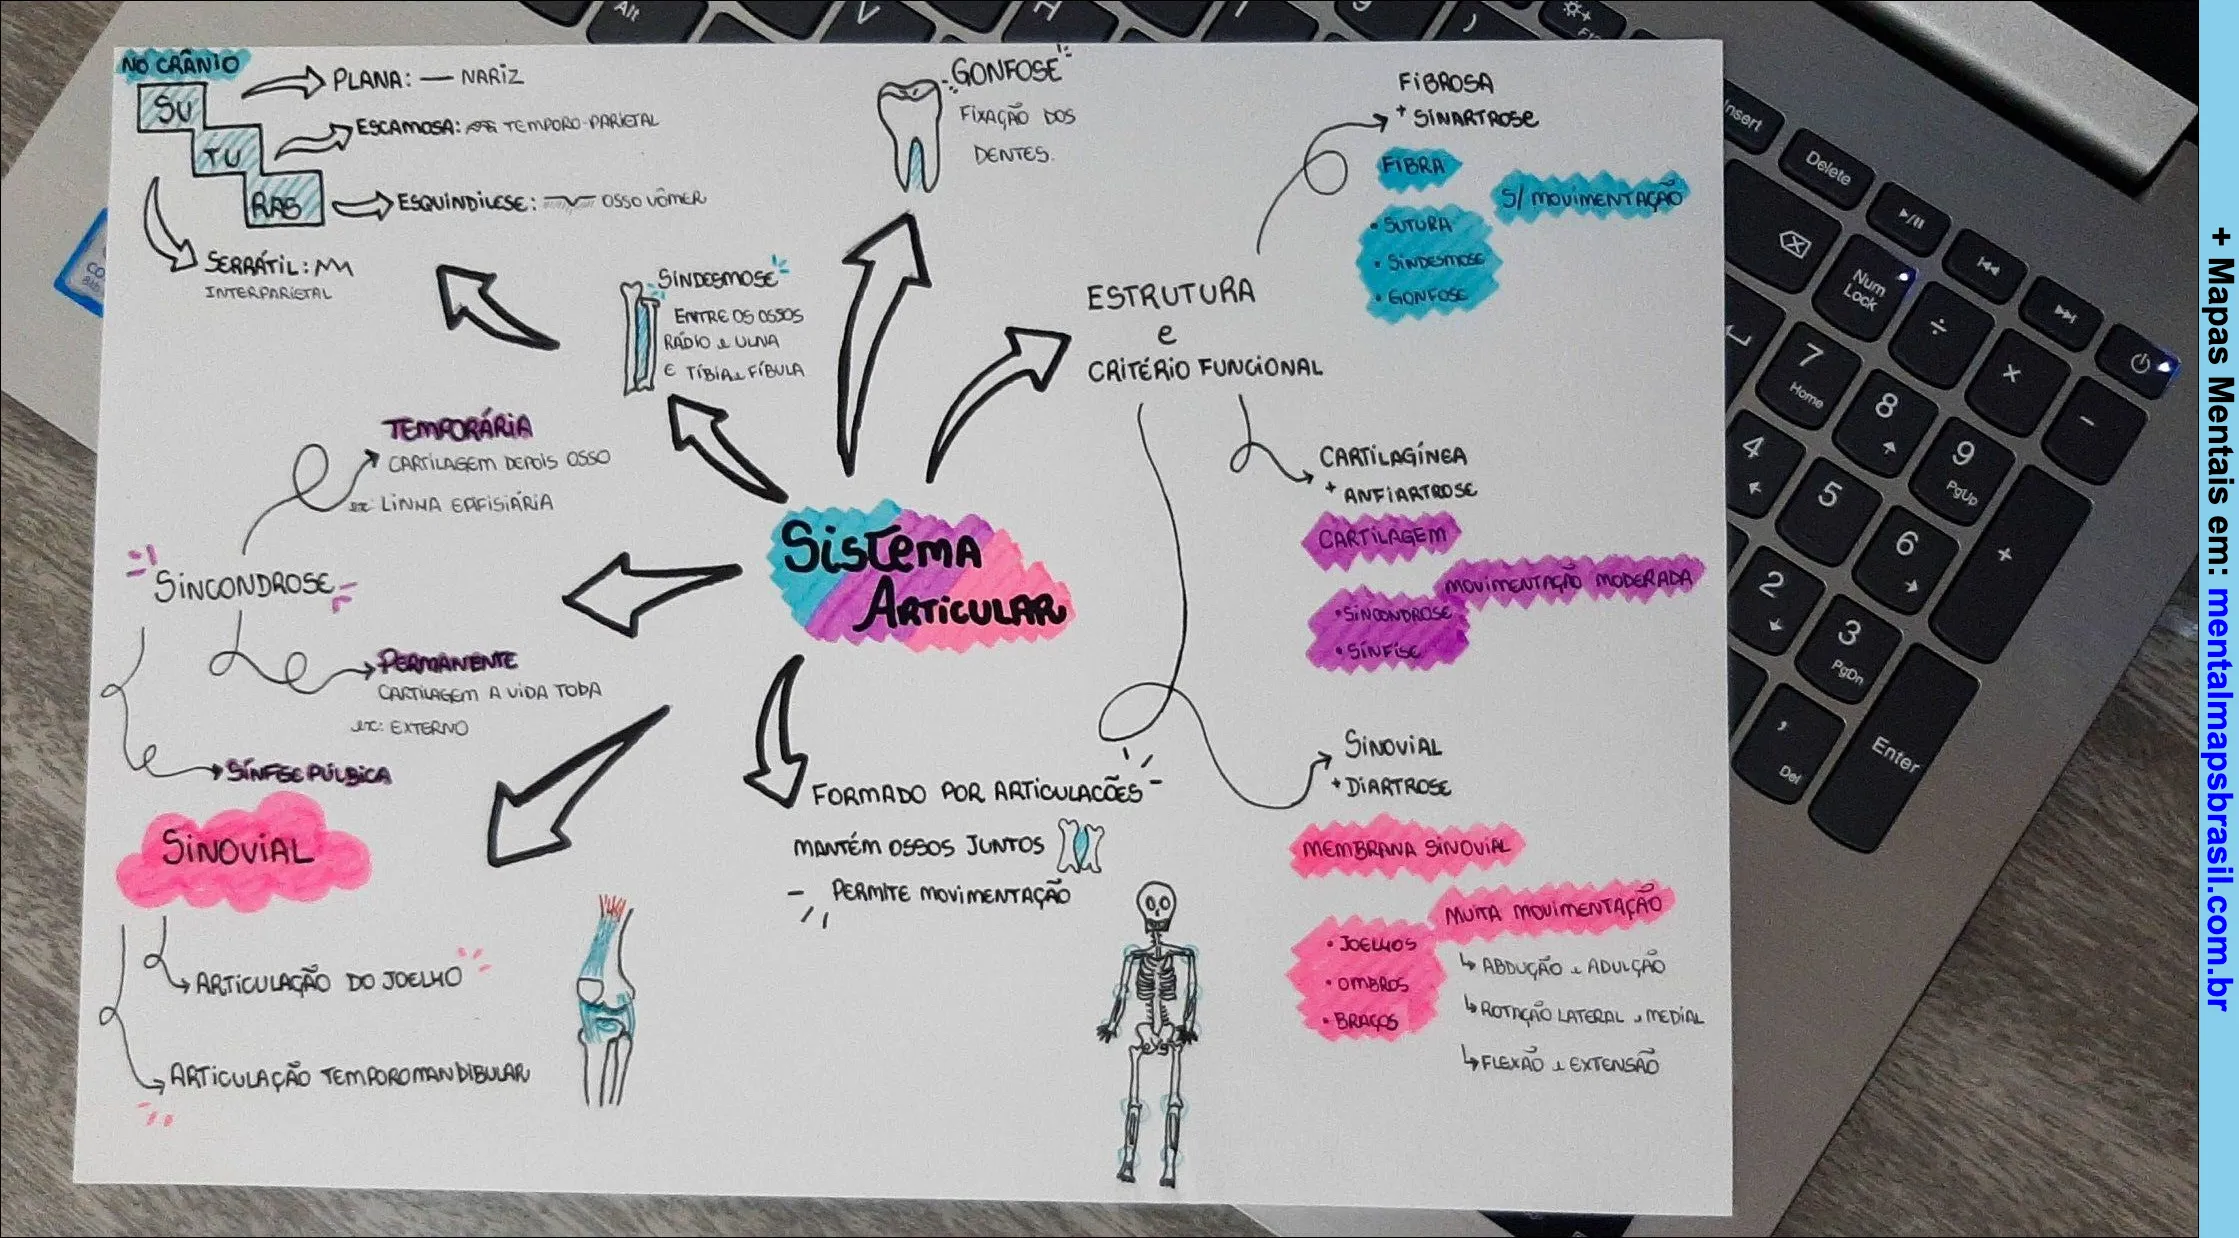 NO CRÂNIO
SU
TU
RAS
PLANA: — NARIZ
ESCAMOSA: TEMPORO-PARIETAL
ESQUINDILESE: OSSO VÔMER
SERRÁTIL:
INTERPARIETAL
GONFOSE
FIXAÇÃO DOS
DENTES.
SINDESMOSE
ENTRE OS OSSOS
RÁDIO e ULNA
E TÍBIA e FÍBULA
ESTRUTURA
e
CRITÉRIO FUNCIONAL
FIBROSA
+ SINARTROSE
FIBRA
S/ MOVIMENTAÇÃO
• SUTURA
• SINDESMOSE
• GONFOSE
CARTILAGÍNEA
+ ANFIARTROSE
CARTILAGEM
MOVIMENTAÇÃO MODERADA
• SINCONDROSE
• SÍNFISE
SINOVIAL
+ DIARTROSE
MEMBRANA SINOVIAL
MUITA MOVIMENTAÇÃO
• JOELHOS
• OMBROS
• BRAÇOS
↳ ABDUÇÃO e ADULÇÃO
↳ ROTAÇÃO LATERAL e MEDIAL
↳ FLEXÃO e EXTENSÃO
TEMPORÁRIA
CARTILAGEM DEPOIS OSSO
ex: LINHA EPIFISIÁRIA
SINCONDROSE
PERMANENTE
CARTILAGEM A VIDA TODA
ex: EXTERNO
SÍNFESE PÚLBICA
Sistema
Articular
SINOVIAL
ARTICULAÇÃO DO JOELHO
ARTICULAÇÃO TEMPOROMANDIBULAR
FORMADO POR ARTICULACÕES
MANTÉM OSSOS JUNTOS
PERMITE MOVIMENTAÇÃO
Alt
V
Insert
Delete
Num
Lock
÷
×
-
7
Home
8
9
PgUp
4
5
6
+
2
3
PgDn
,
Del
Enter
+ Mapas Mentais em: mentalmapsbrasil.com.br